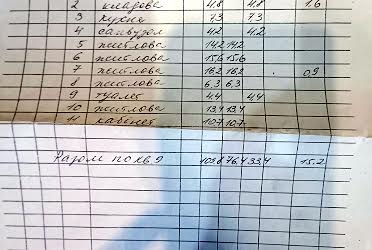 2 кладова 4.8 4.8 1.6
3 кухня 7.3 7.3
4 санвузол 4.2 4.2
5 житлова 14.2 14.2
6 житлова 15.6 15.6
7 житлова 16.2 16.2 0.9
8 житлова 6.3 6.3
9 туалет 4.4 4.4
10 житлова 13.4 13.4
11 кабінет 10.7 10.7
Разом по кв 9 109.8 76.4 33.4 15.2